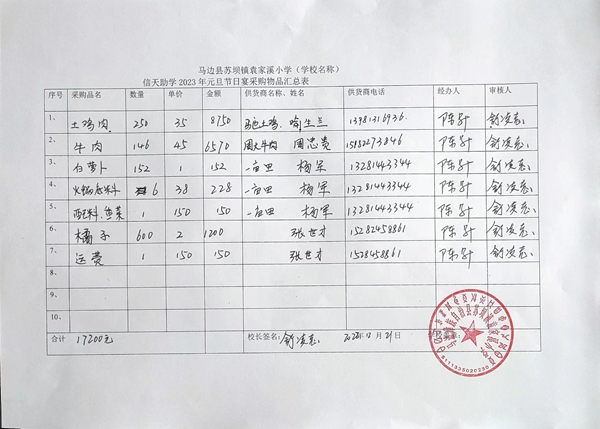 马边县苏坝镇袁家溪小学(学校名称)
信天助学2023年元旦节日宴采购物品汇总表
序号 采购品名 数量 单价 金额 供货商名、姓名 供货商电话 经办人 审核人
1、 土鸡肉 250 35 8750 土鸡、 13981316936. 陈
2、 牛肉 146 45 6570 周火牛肉 周忠贵 15182273846 陈
3、 白萝卜 152 1 152 一亩田 杨军 13281443344 陈
4、 火锅底料 6 38 228 一亩田 杨军 13281443344 陈
5、 配料、鱼菜 1 150 150 一亩田 杨军 13281443344 陈
6、 橘子 600 2 1200 张世才 15282458861 陈
7、 运费 1 150 150 张世才 1528458861 陈
8、
9、
10、
合计 17200元 校长签名: 12月31日
5111335020230